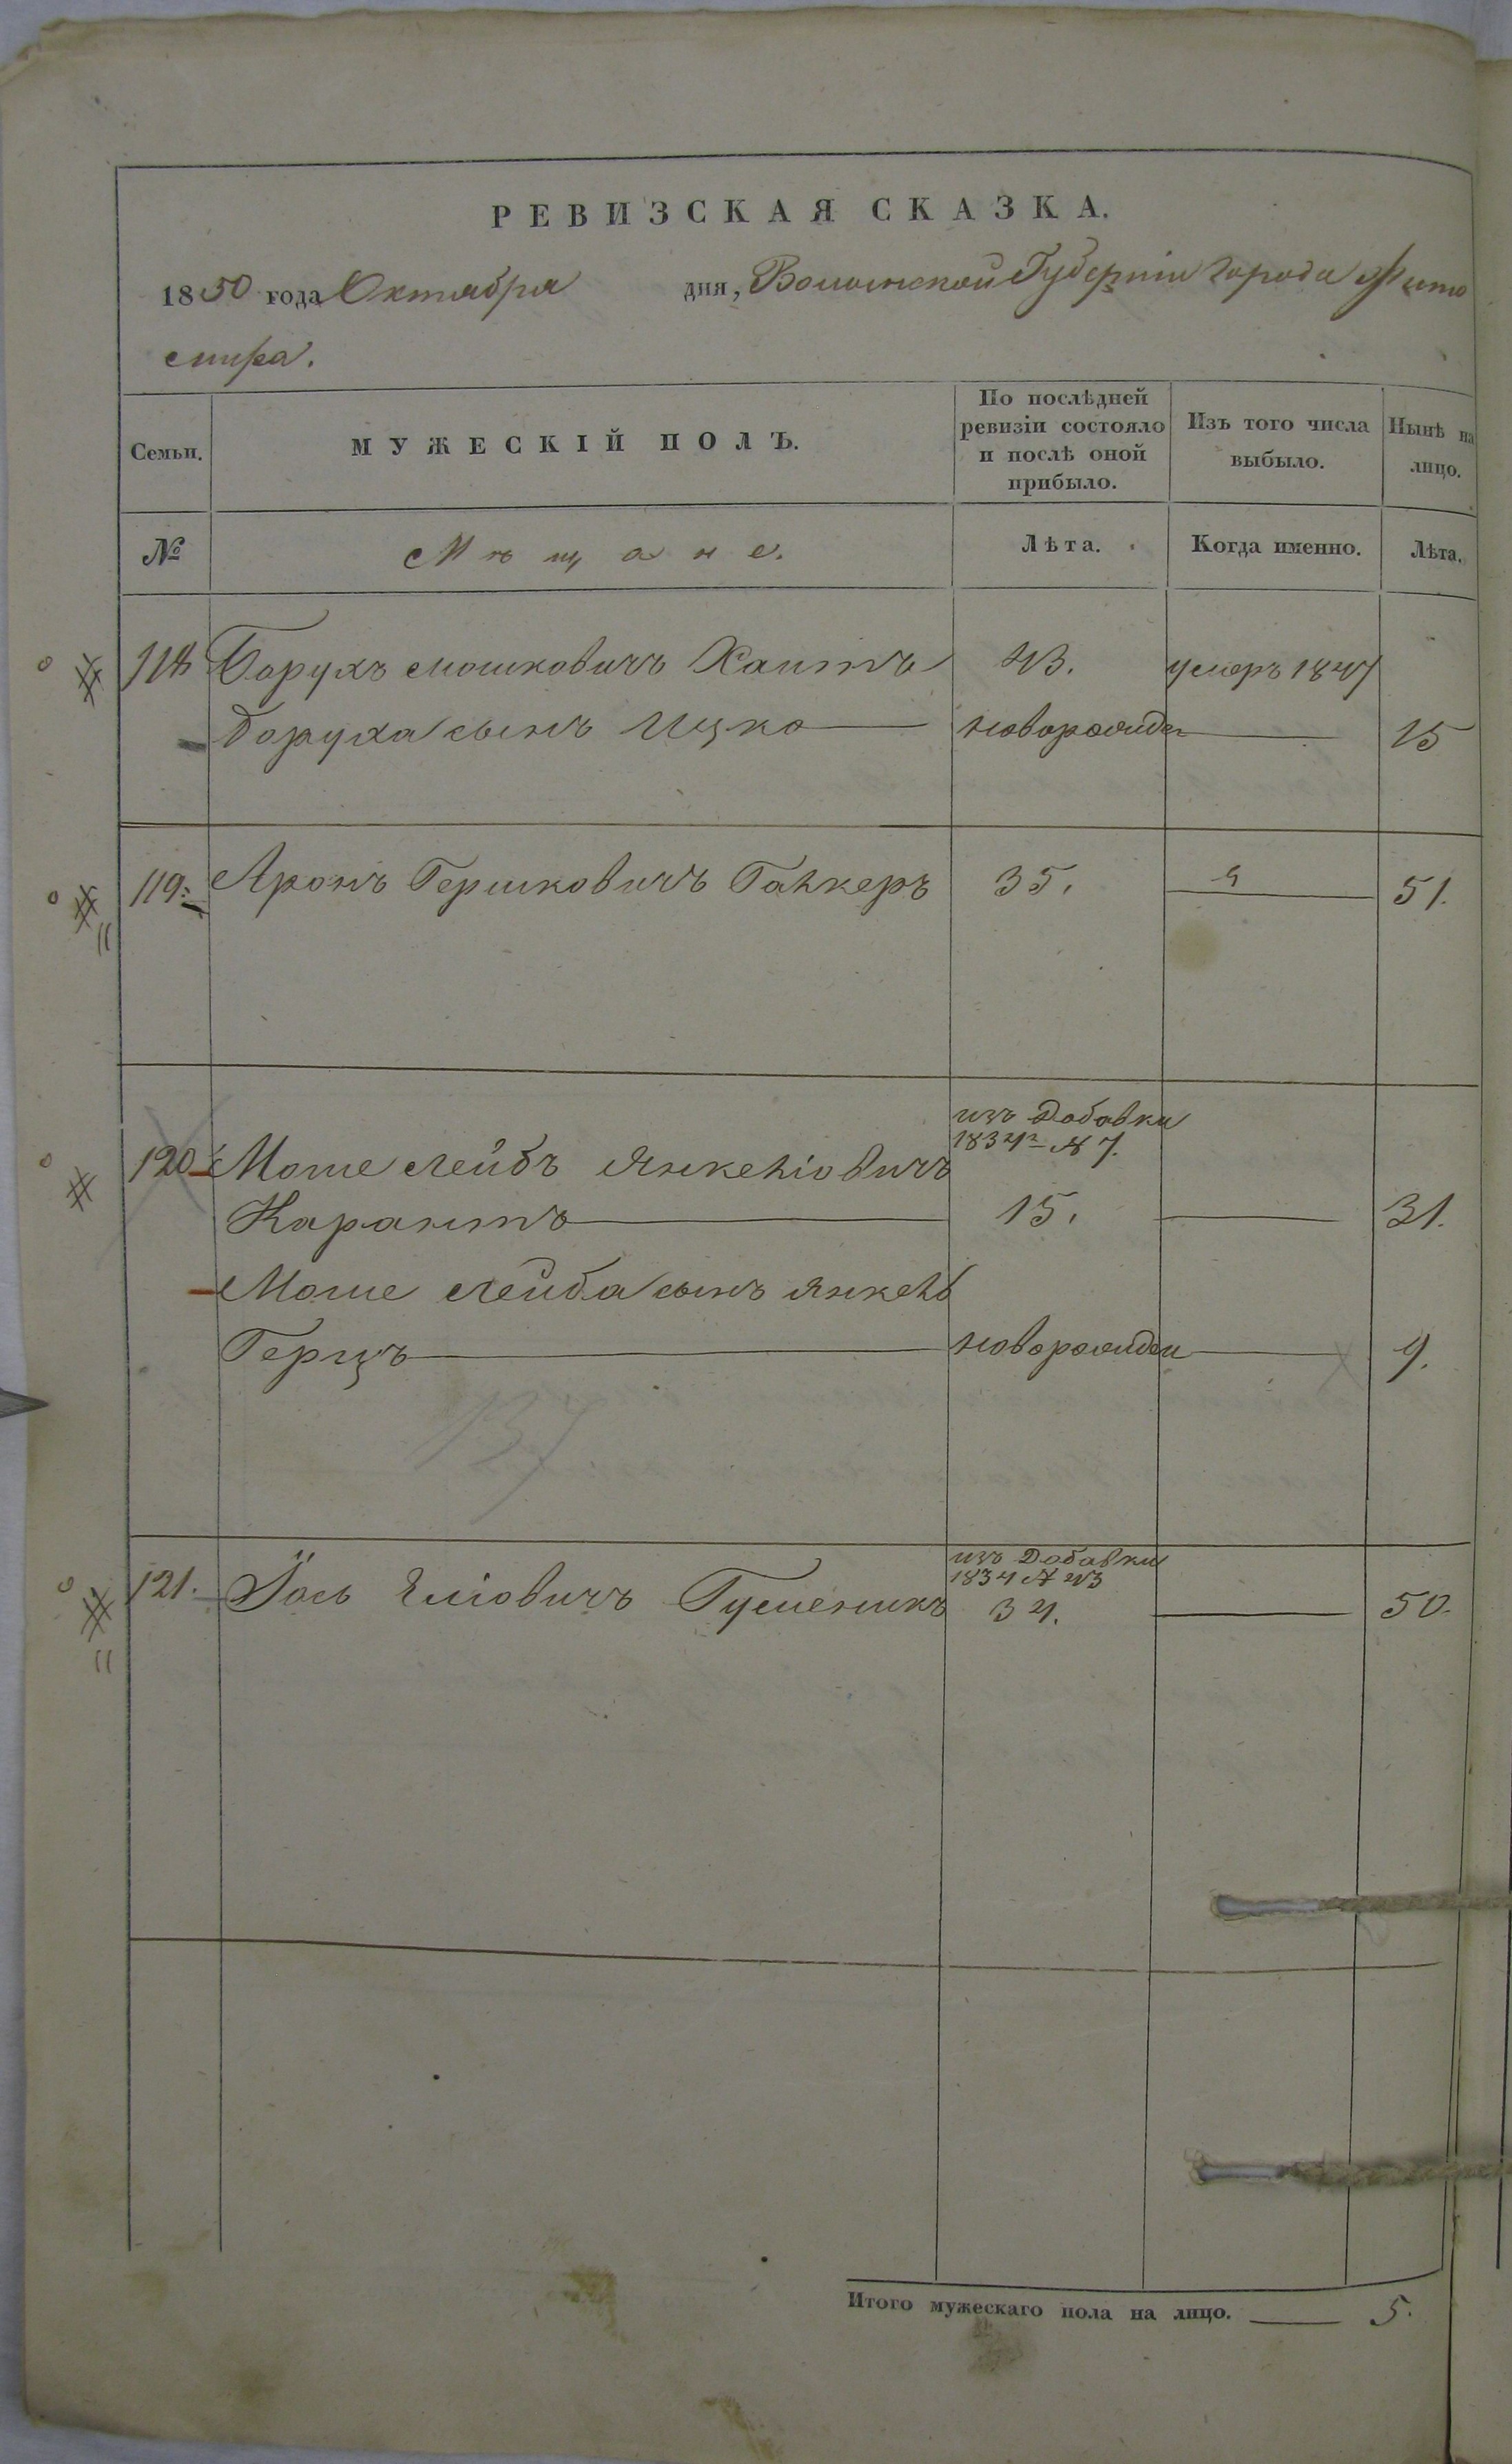 РЕВИЗСКАЯ СКАЗКА.
1850 года Октября дня, Волынской Губерніи города Жито
мира.
Семьи. МУЖЕСКІЙ ПОЛЪ. По послѣдней ревизіи состояло и послѣ оной прибыло. Изъ того числа выбыло. Нынѣ на лицо.
№ Мѣщане. Лѣта. Когда именно. Лѣта.
118 Борухъ Мошковичъ Хаитъ 43. умеръ 1847
Боруха сынъ Ицко новорожден 15
119. Аронъ Гершковичъ Галкеръ 35. 51.
изъ Добавки
1834 № 7.
120 Моше Лейбъ Янкеліовичъ
Карантъ 15. 31.
Моше Лейба сынъ Янкель
Герцъ новорожден 9.
137
изъ Добавки
1834 № 43
121. Іось Еліовичъ 34. 50.
Итого мужескаго пола на лицо. 5.